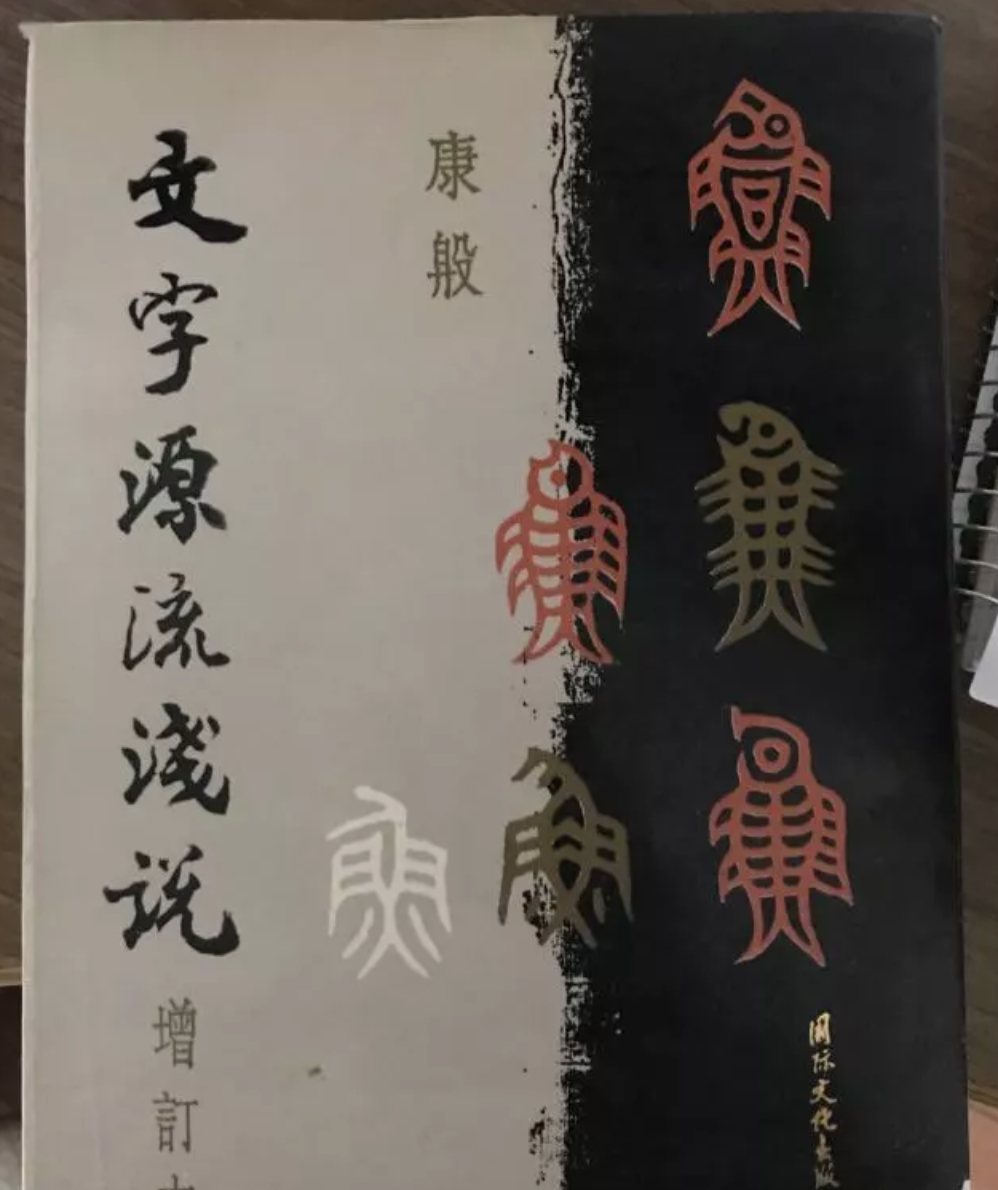 文字源流淺说
增訂
康殷
国际文化出版